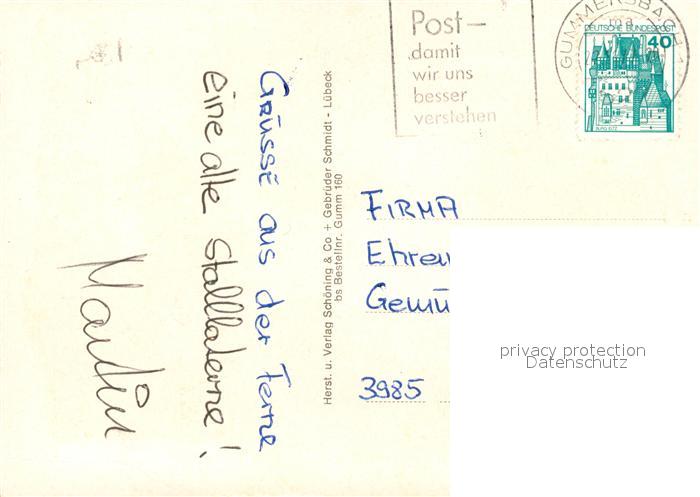 Post–
damit
wir uns
besser
verstehen
GUMMERSBACH 1
ma
DEUTSCHE BUNDESPOST
40
BURG ELTZ
Grüsse aus der Ferne
eine alte Stalllaterne!
Martin
Herst. u. Verlag Schöning & Co + Gebrüder Schmidt - Lübeck
bs Bestellnr. Gumm 160
FIRMA
Ehren
Gemü
3985
privacy protection
Datenschutz